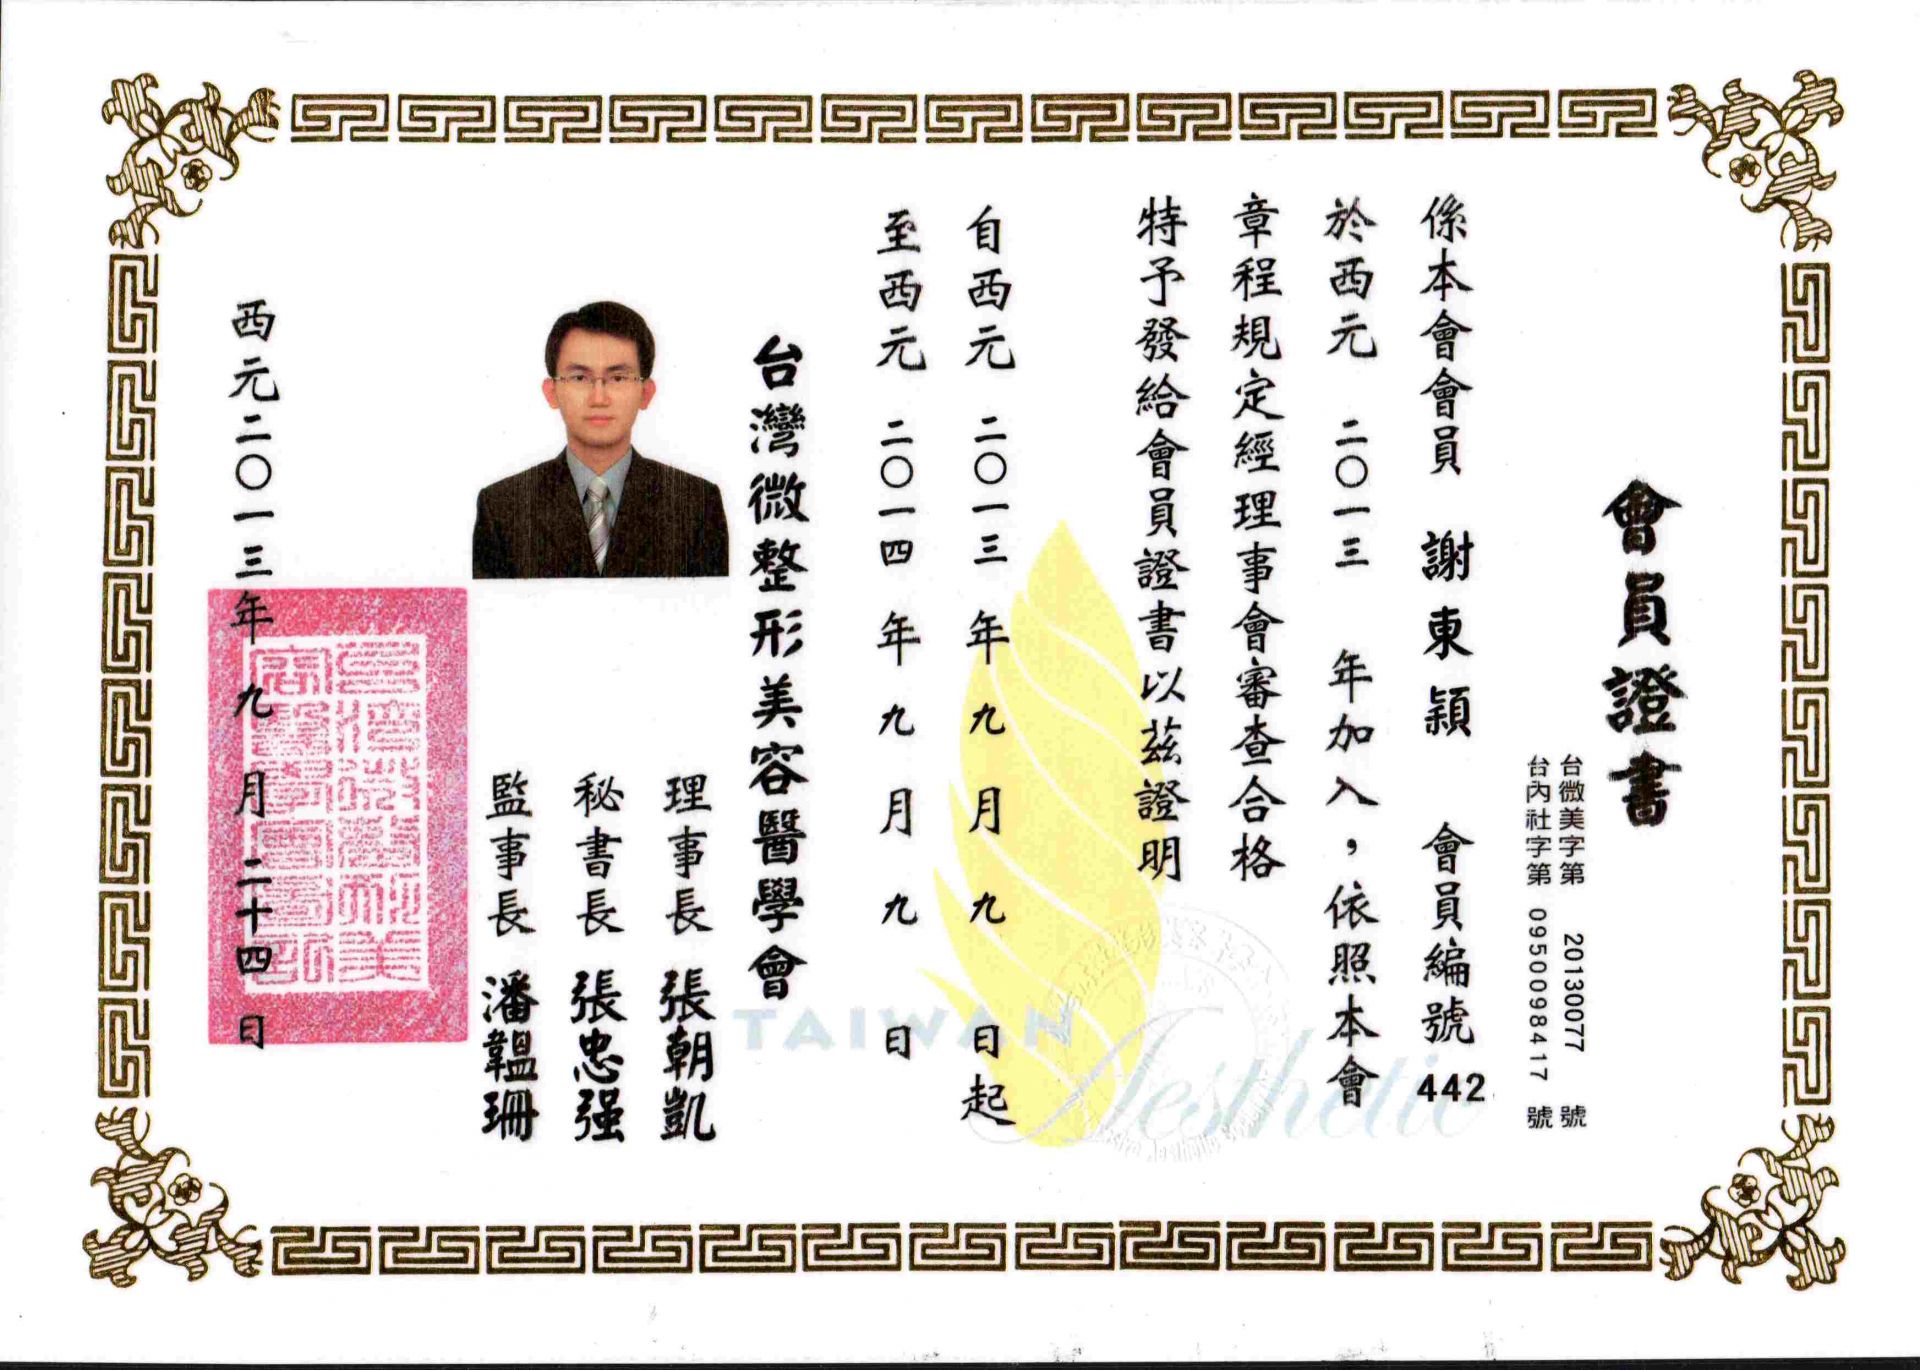 會員證書
台微美字第 20130077 號
台內社字第 0950098417 號
係本會會員 謝東穎 會員編號 442
於西元 二〇一三 年加入，依照本會
章程規定經理事會審查合格
特予發給會員證書以茲證明
自西元 二〇一三 年 九 月 九 日起
至西元 二〇一四 年 九 月 九 日
台灣微整形美容醫學會
理事長 張朝凱
秘書長 張忠强
監事長 潘韞珊
西元二〇一三年 九 月 二十四 日
TAIWAN
Aesthetic